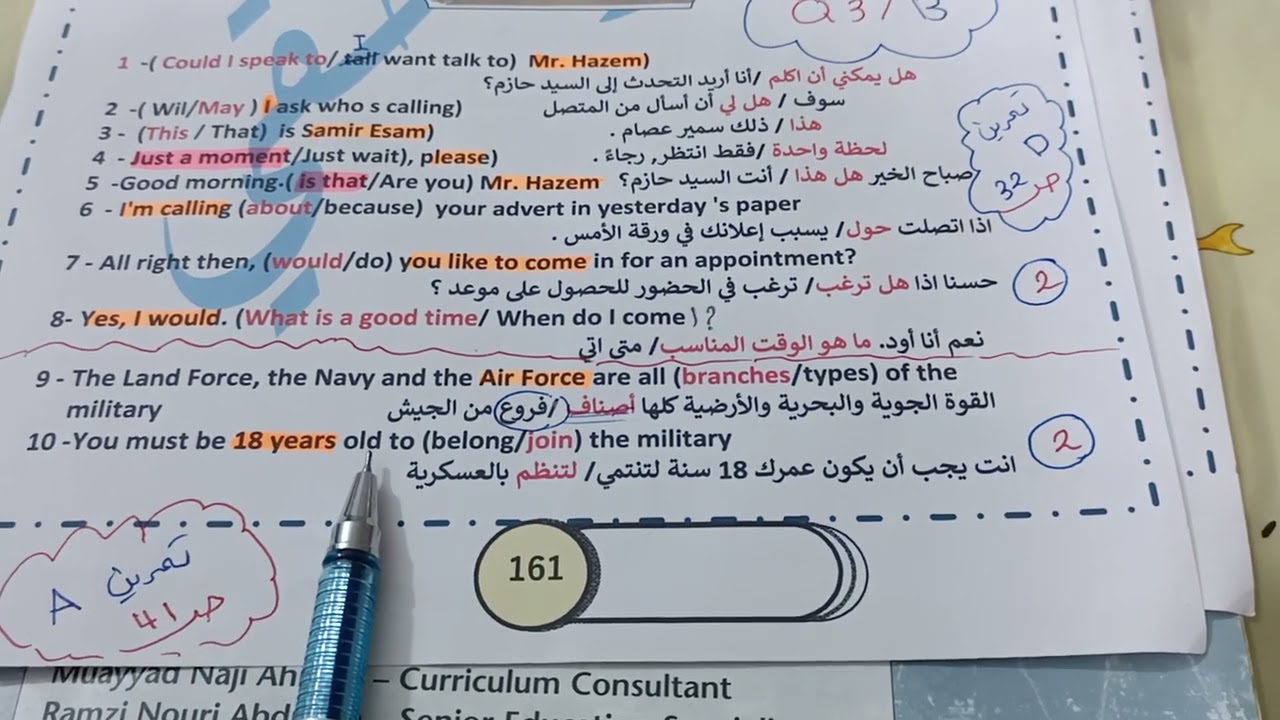 Q3/B
I
1 -( Could I speak to/ want talk to) Mr. Hazem)
هل يمكني أن اكلم /أنا أريد التحدث إلى السيد حازم؟
2 -( Wil/May ) I ask who s calling)
سوف / هل لي أن أسأل من المتصل
3 - (This / That) is Samir Esam)
هذا / ذلك سمير عصام .
4 - Just a moment/Just wait), please)
لحظة واحدة /فقط انتظر, رجاءً .
5 -Good morning.( is that/Are you) Mr. Hazem
صباح الخير هل هذا / أنت السيد حازم؟
تمرين
D
ص 32
6 - I'm calling (about/because) your advert in yesterday 's paper
اذا اتصلت حول/ يسبب إعلانك في ورقة الأمس .
7 - All right then, (would/do) you like to come in for an appointment?
حسنا اذا هل ترغب/ ترغب في الحضور للحصول على موعد ؟
2
8- Yes, I would. (What is a good time/ When do I come ) ?
نعم أنا أود. ما هو الوقت المناسب/ متى اتي
9 - The Land Force, the Navy and the Air Force are all (branches/types) of the
military
القوة الجوية والبحرية والأرضية كلها أصناف /فروع من الجيش
10 -You must be 18 years old to (belong/join) the military
انت يجب أن يكون عمرك 18 سنة لتنتمي/ لتنظم بالعسكرية
2
تمرين
A
ص 41
161
Muayyad Naji – Curriculum Consultant
Ramzi Nouri